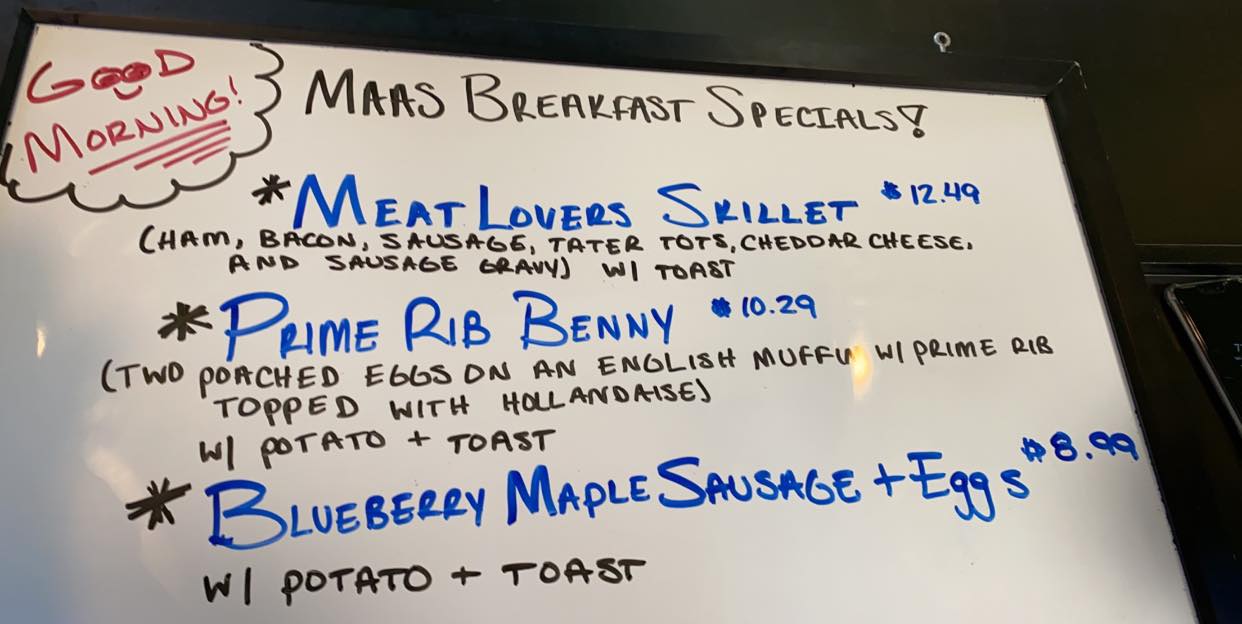 GOOD
MORNING!
MAAS BREAKFAST SPECIALS!
*MEAT LOVERS SKILLET $12.49
(HAM, BACON, SAUSAGE, TATER TOTS, CHEDDAR CHEESE,
AND SAUSAGE GRAVY) W/ TOAST
*PRIME RIB BENNY $10.29
(TWO POACHED EGGS ON AN ENGLISH MUFFIN W/ PRIME RIB
TOPPED WITH HOLLANDAISE)
W/ POTATO + TOAST
*BLUEBERRY MAPLE SAUSAGE + Eggs $8.99
W/ POTATO + TOAST